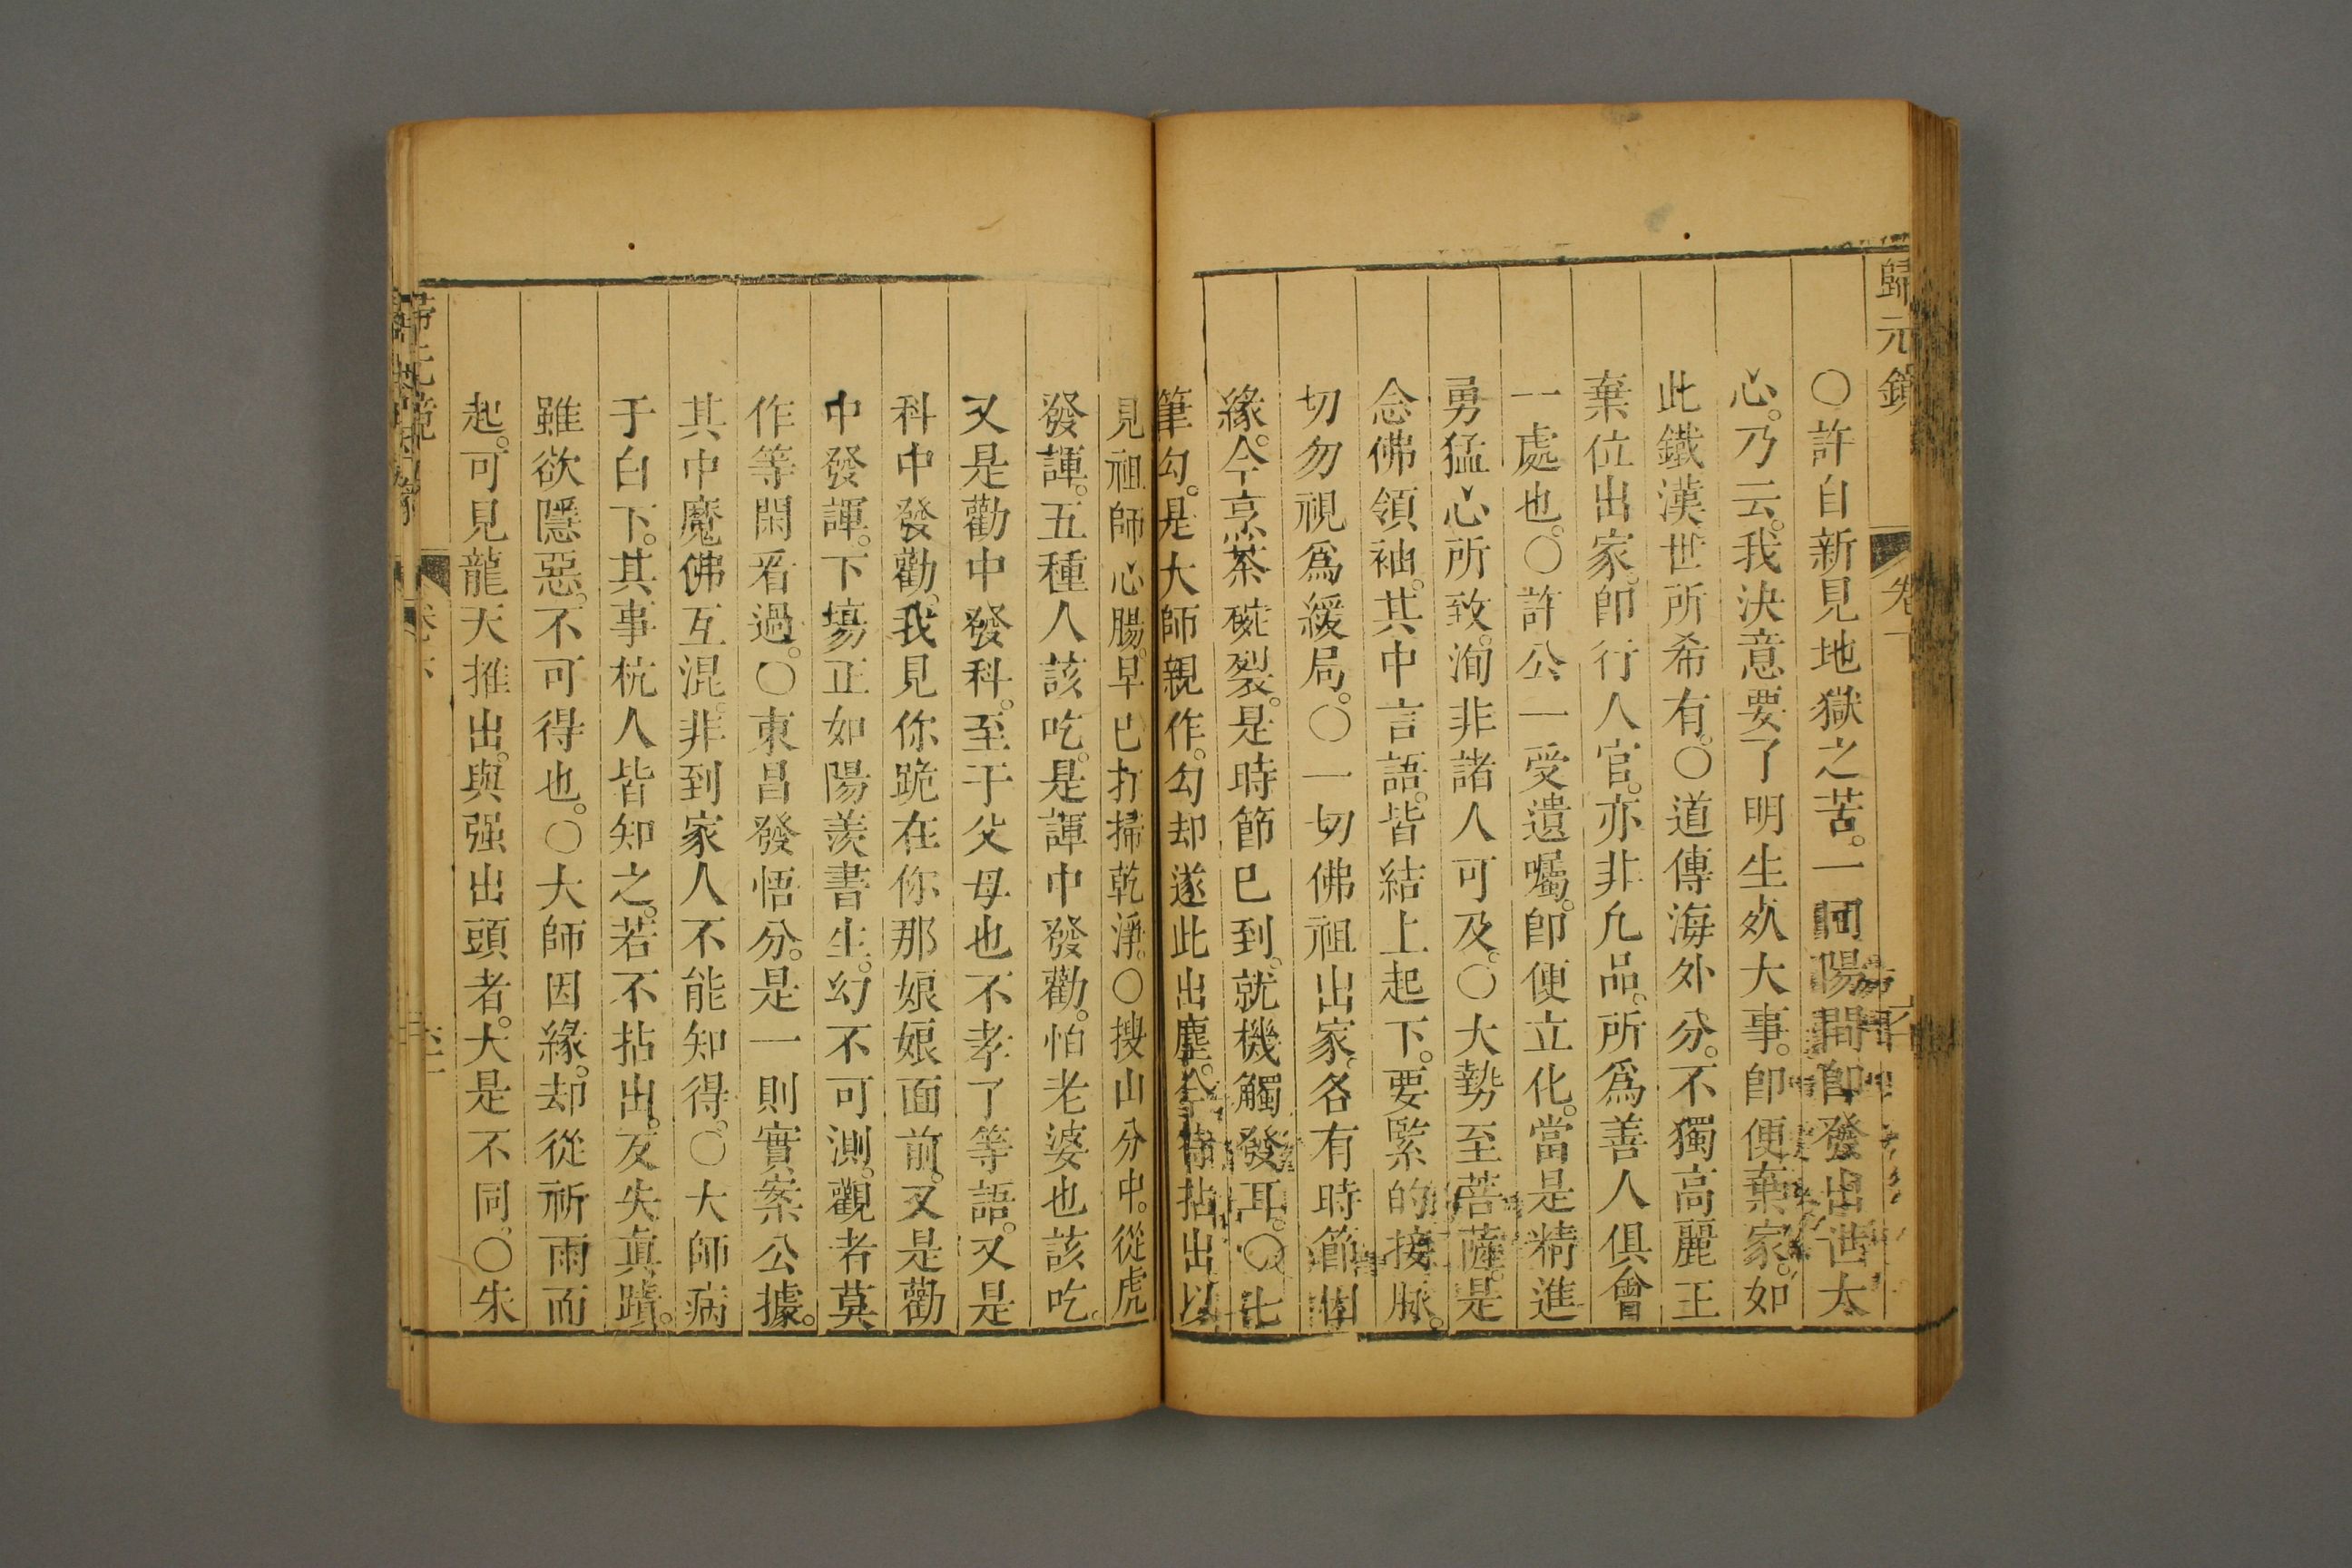 歸元鏡 卷下
○許自新見地獄之苦。一回陽間卽發出世大
心。乃云。我決意要了明生𣦸大事。卽便棄家。如
此鐵漢世所希有。○道傳海外分。不獨高麗王
棄位出家。卽行人官。亦非凢品。所爲善人俱會
一處也。○許公一受遺囑。卽便立化。當是精進
勇猛心所致。洵非諸人可及。○大勢至菩薩。是
念佛領袖。其中言語。皆結上起下。要緊的接脉。
切勿視爲緩局。○一切佛祖出家。各有時節因
緣。今烹茶碗裂。是時節已到。就機觸發耳。○七
筆勾。是大師親作。勾却遂此出塵。今特拈出以
見祖師心腸。早已打掃乾淨。○搜山分中。從虎
發諢。五種人該吃。是諢中發勸。怕老婆也該吃。
又是勸中發科。至于父母也不孝了等語。又是
科中發勸。我見你跪在你那娘娘面前。又是勸
中發諢。下塲正如陽羨書生。幻不可測。觀者莫
作等閑看過。○東昌發悟分。是一則實案公據。
其中魔佛互混。非到家人不能知得。○大師病
于白下。其事杭人皆知之。若不拈出。反失眞蹟。
雖欲隱惡。不可得也。○大師因緣。却從祈雨而
起。可見龍天推出。與强出頭者。大是不同。○朱
歸元鏡 卷下